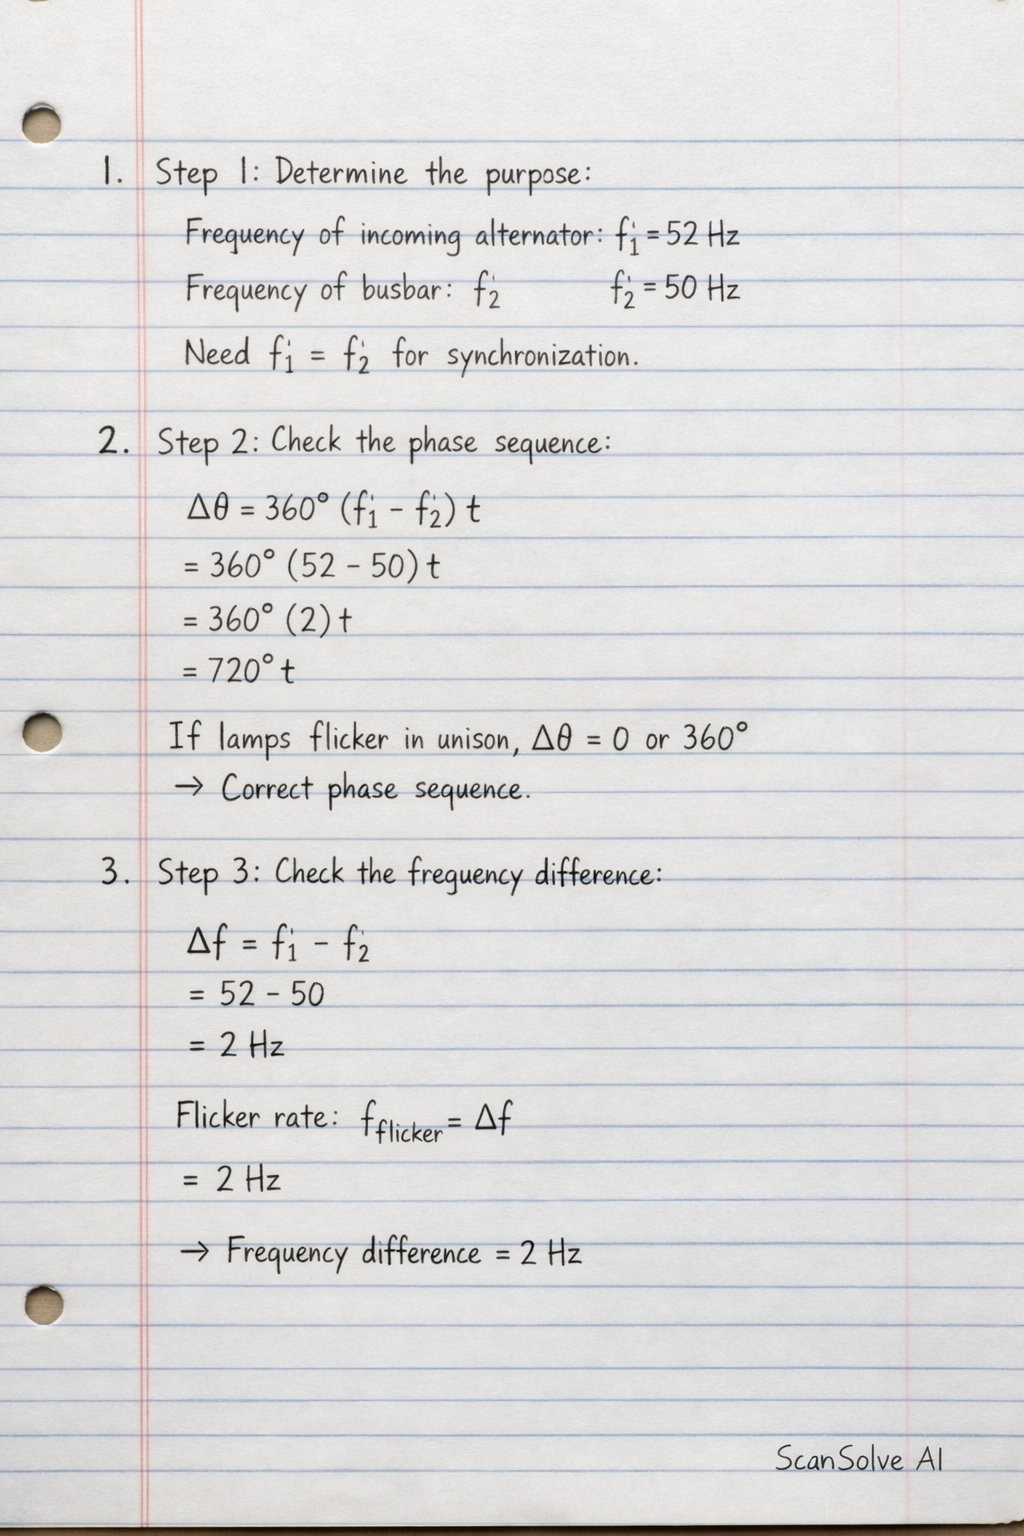 1. Step 1: Determine the purpose:
Frequency of incoming alternator: f₁ = 52 Hz
Frequency of busbar: f₂ f₂ = 50 Hz
Need f₁ = f₂ for synchronization.
2. Step 2: Check the phase sequence:
Δθ = 360° (f₁ - f₂) t
= 360° (52 - 50) t
= 360° (2) t
= 720° t
If lamps flicker in unison, Δθ = 0 or 360°
→ Correct phase sequence.
3. Step 3: Check the frequency difference:
Δf = f₁ - f₂
= 52 - 50
= 2 Hz
Flicker rate: f_flicker = Δf
= 2 Hz
→ Frequency difference = 2 Hz
ScanSolve AI